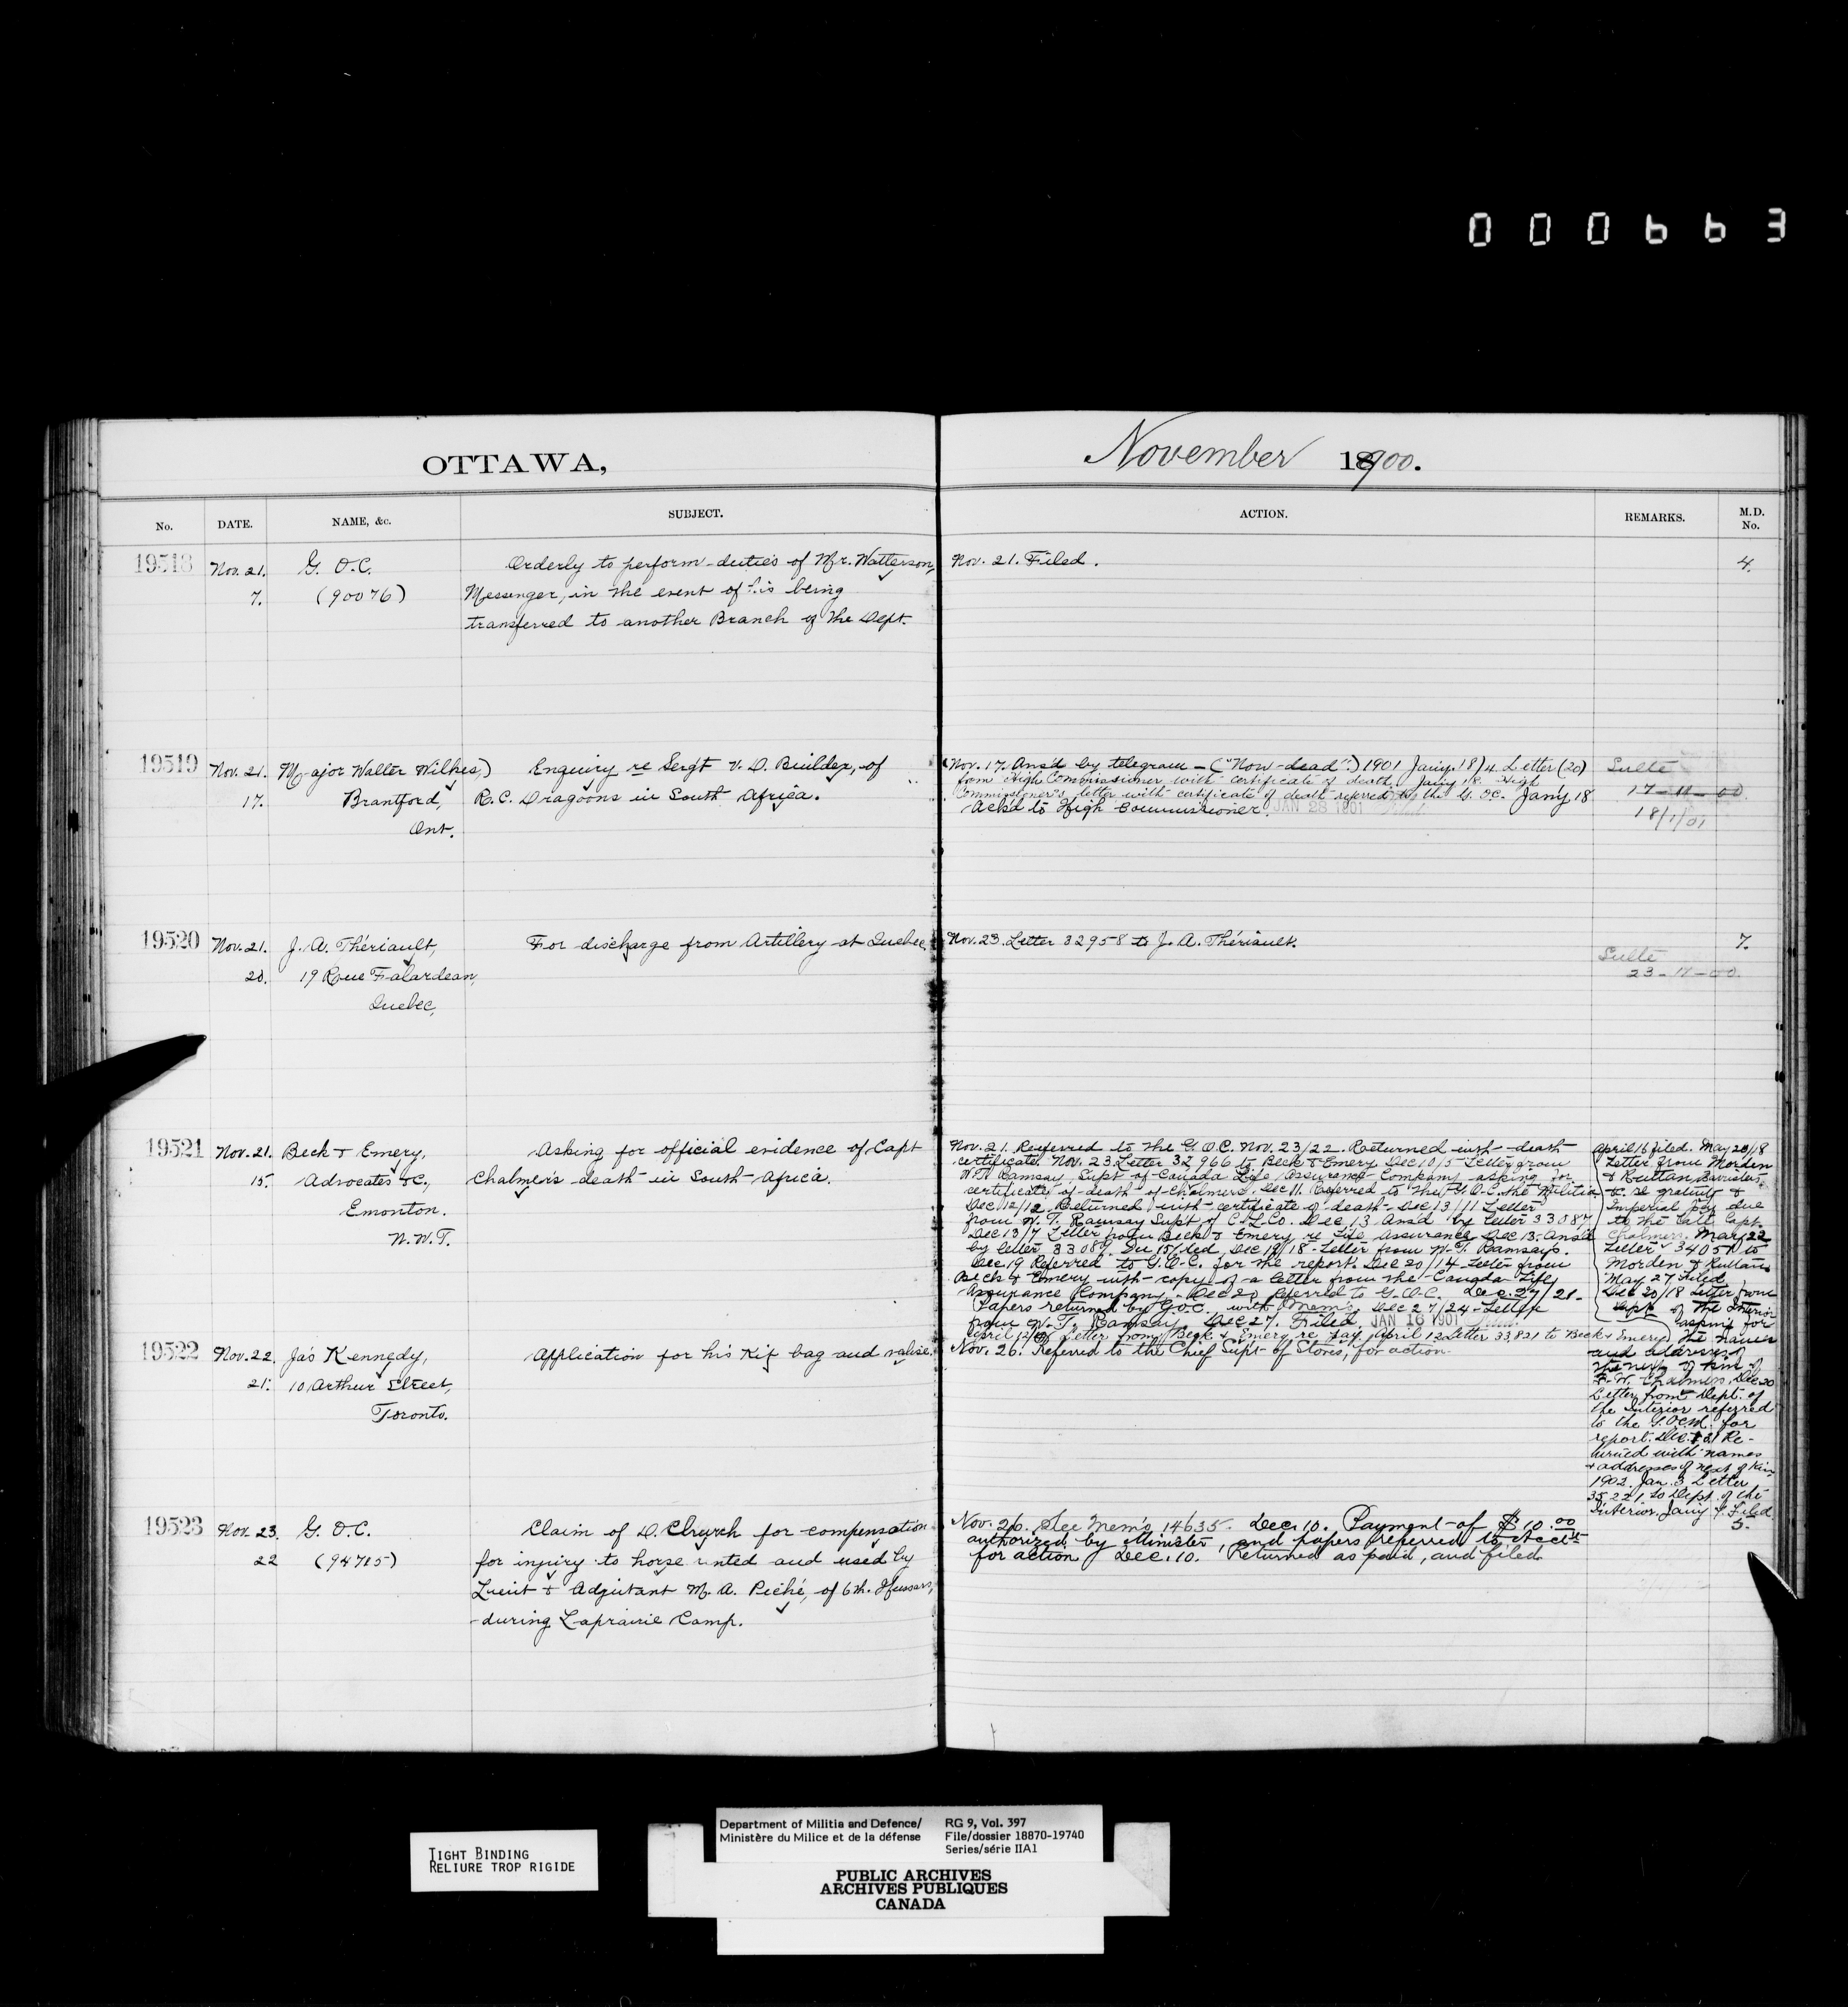 000663
OTTAWA,
November 1900.
No. DATE. NAME, &c. SUBJECT. ACTION. REMARKS. M.D. No.
19518 Nov. 21. G. O. C. Orderly to perform duties of Mr. Watterson, Nov. 21. Filed. 4.
7. (90076) Messenger, in the event of his being
transferred to another Branch of the Dept.
19519 Nov. 21. Major Walter Wilkes,) Enquiry re Sergt V. D. Builder, of
17. Brantford, R.C. Dragoons in South Africa.
Ont.
Nov. 17. Ansd by telegram - ("Now dead".) 1901 Jany. 18/4 Letter (20)
from High Commissioner with certificate of death. Jany 18. High
Commissioner's letter with certificate of death referred to the G. O.C. Jan'y 18
Ackd to High Commissioner. JAN 28 1901 Filed.
Sulte
17-11-00
18/1/01
19520 Nov. 21. J. A. Thériault, For discharge from Artillery at Quebec. Nov. 23. Letter 32958 to J. A. Thériault. 7.
20. 19 Rue Falardeau,
Quebec,
Sulte
23-11-00.
19521 Nov. 21. Beck & Emery, Asking for official evidence of Capt
15. Advocates &c., Chalmers death in South Africa.
Emonton.
N.W.T.
Nov. 21. Referred to the G.O.C. Nov. 23/22. Returned with death
certificate. Nov. 23 Letter 32966 to Beck & Emery Dec 10/5 Letter from
W.T. Ramsay, Supt of Canada Life Assurance Company asking for
certificate of death of Chalmers. Dec 11. Referred to the G.O.C. the Militia
Dec 12/12. Returned with certificate of death. Dec 13/11 Letter
from W. T. Ramsay Supt of C.L. Co. Dec. 13 Ansd by letter 33087.
Dec 13/7 Letter from Beck & Emery re Life Assurance Dec 13. Ansd
by letter 33089. Dec 15 filed, Dec 19/18 - Letter from W. T. Ramsay.
Dec 19 Referred to G.O.C. for the report. Dec 20/14 Letter from
Beck & Emery with copy of a letter from the Canada Life
Assurance Company. Dec 20 Referred to G.O.C. Dec. 27/21-
Papers returned by G.O.C. with Memo, Dec 27/24 - Letter
from W. T. Ramsay, Dec 27. Filed. JAN 16 1901 Filed.
April 12/ Letter from Beck & Emery re pay April 12 Letter 33,821 to Beck & Emery
April 16 filed. May 20/18
Letter from Morden
& Ruttan Barristers
&c. re gratuity &
Imperial pay due
to the late Capt.
Chalmers. May 22
Letter 34051 to
Morden & Ruttan
May 27 Filed
Dec 20/18 Letter from
Dept. of the Interior
asking for
the names
and address of
the next of kin of
F. W. Chalmers. Dec 20
Letter from Dept. of
the Interior referred
to the G.O.C.M. for
report. Dec. 21 Re-
turned with names
& addresses of next of kin
1902 Jan. 3 Letter
35221 to Dept. of the
Interior. Jany 9. Filed.
19522 Nov. 22. Jas Kennedy, Application for his Kit bag and valise. Nov. 26. Referred to the Chief Supt of Stores, for action.
21. 10 Arthur Street,
Toronto.
19523 Nov. 23. G. O.C. Claim of D. Church for compensation
22 (94715) for injury to horse rented and used by
Lieut & Adjutant M. A. Piché, of 6th. Hussars,
during Laprairie Camp.
Nov. 26. See Mem'o 14635. Dec. 10. Payment of $10.00 5.
authorized by Minister, and papers referred to Acct
for action Dec. 10. Returned as paid, and filed
TIGHT BINDING
RELIURE TROP RIGIDE
Department of Militia and Defence/ RG 9, Vol. 397
Ministère du Milice et de la défense File/dossier 18870-19740
Series/série IIA1
PUBLIC ARCHIVES
ARCHIVES PUBLIQUES
CANADA